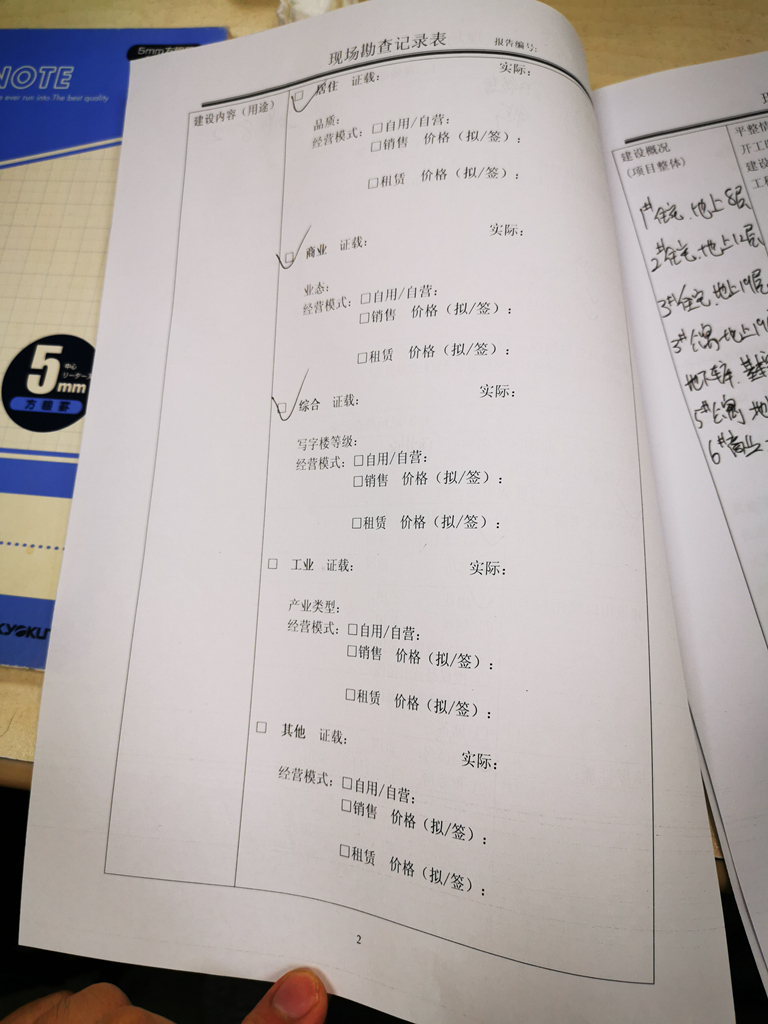 现场勘查记录表
报告编号:
建设内容（用途）
☑ 居住 证载: 实际:
品质:
经营模式: □自用/自营:
□销售 价格（拟/签）:
□租赁 价格（拟/签）:
☑ 商业 证载: 实际:
业态:
经营模式: □自用/自营:
□销售 价格（拟/签）:
□租赁 价格（拟/签）:
☑ 综合 证载: 实际:
写字楼等级:
经营模式: □自用/自营:
□销售 价格（拟/签）:
□租赁 价格（拟/签）:
□ 工业 证载: 实际:
产业类型:
经营模式: □自用/自营:
□销售 价格（拟/签）:
□租赁 价格（拟/签）:
□ 其他 证载: 实际:
经营模式: □自用/自营:
□销售 价格（拟/签）:
□租赁 价格（拟/签）:
2
NOTE
ever run into. The best quality
5mm方眼罫
5mm
中心
リーダー
方眼罫
KYOKU
建设概况
(项目整体)
平整情
开工
建设
工程
1# 住宅、地上8层
2# 住宅、地上12层
3# 住宅、地上19层
3# 公寓、地上19
地下车库、
5# 公寓、地
6# 商业